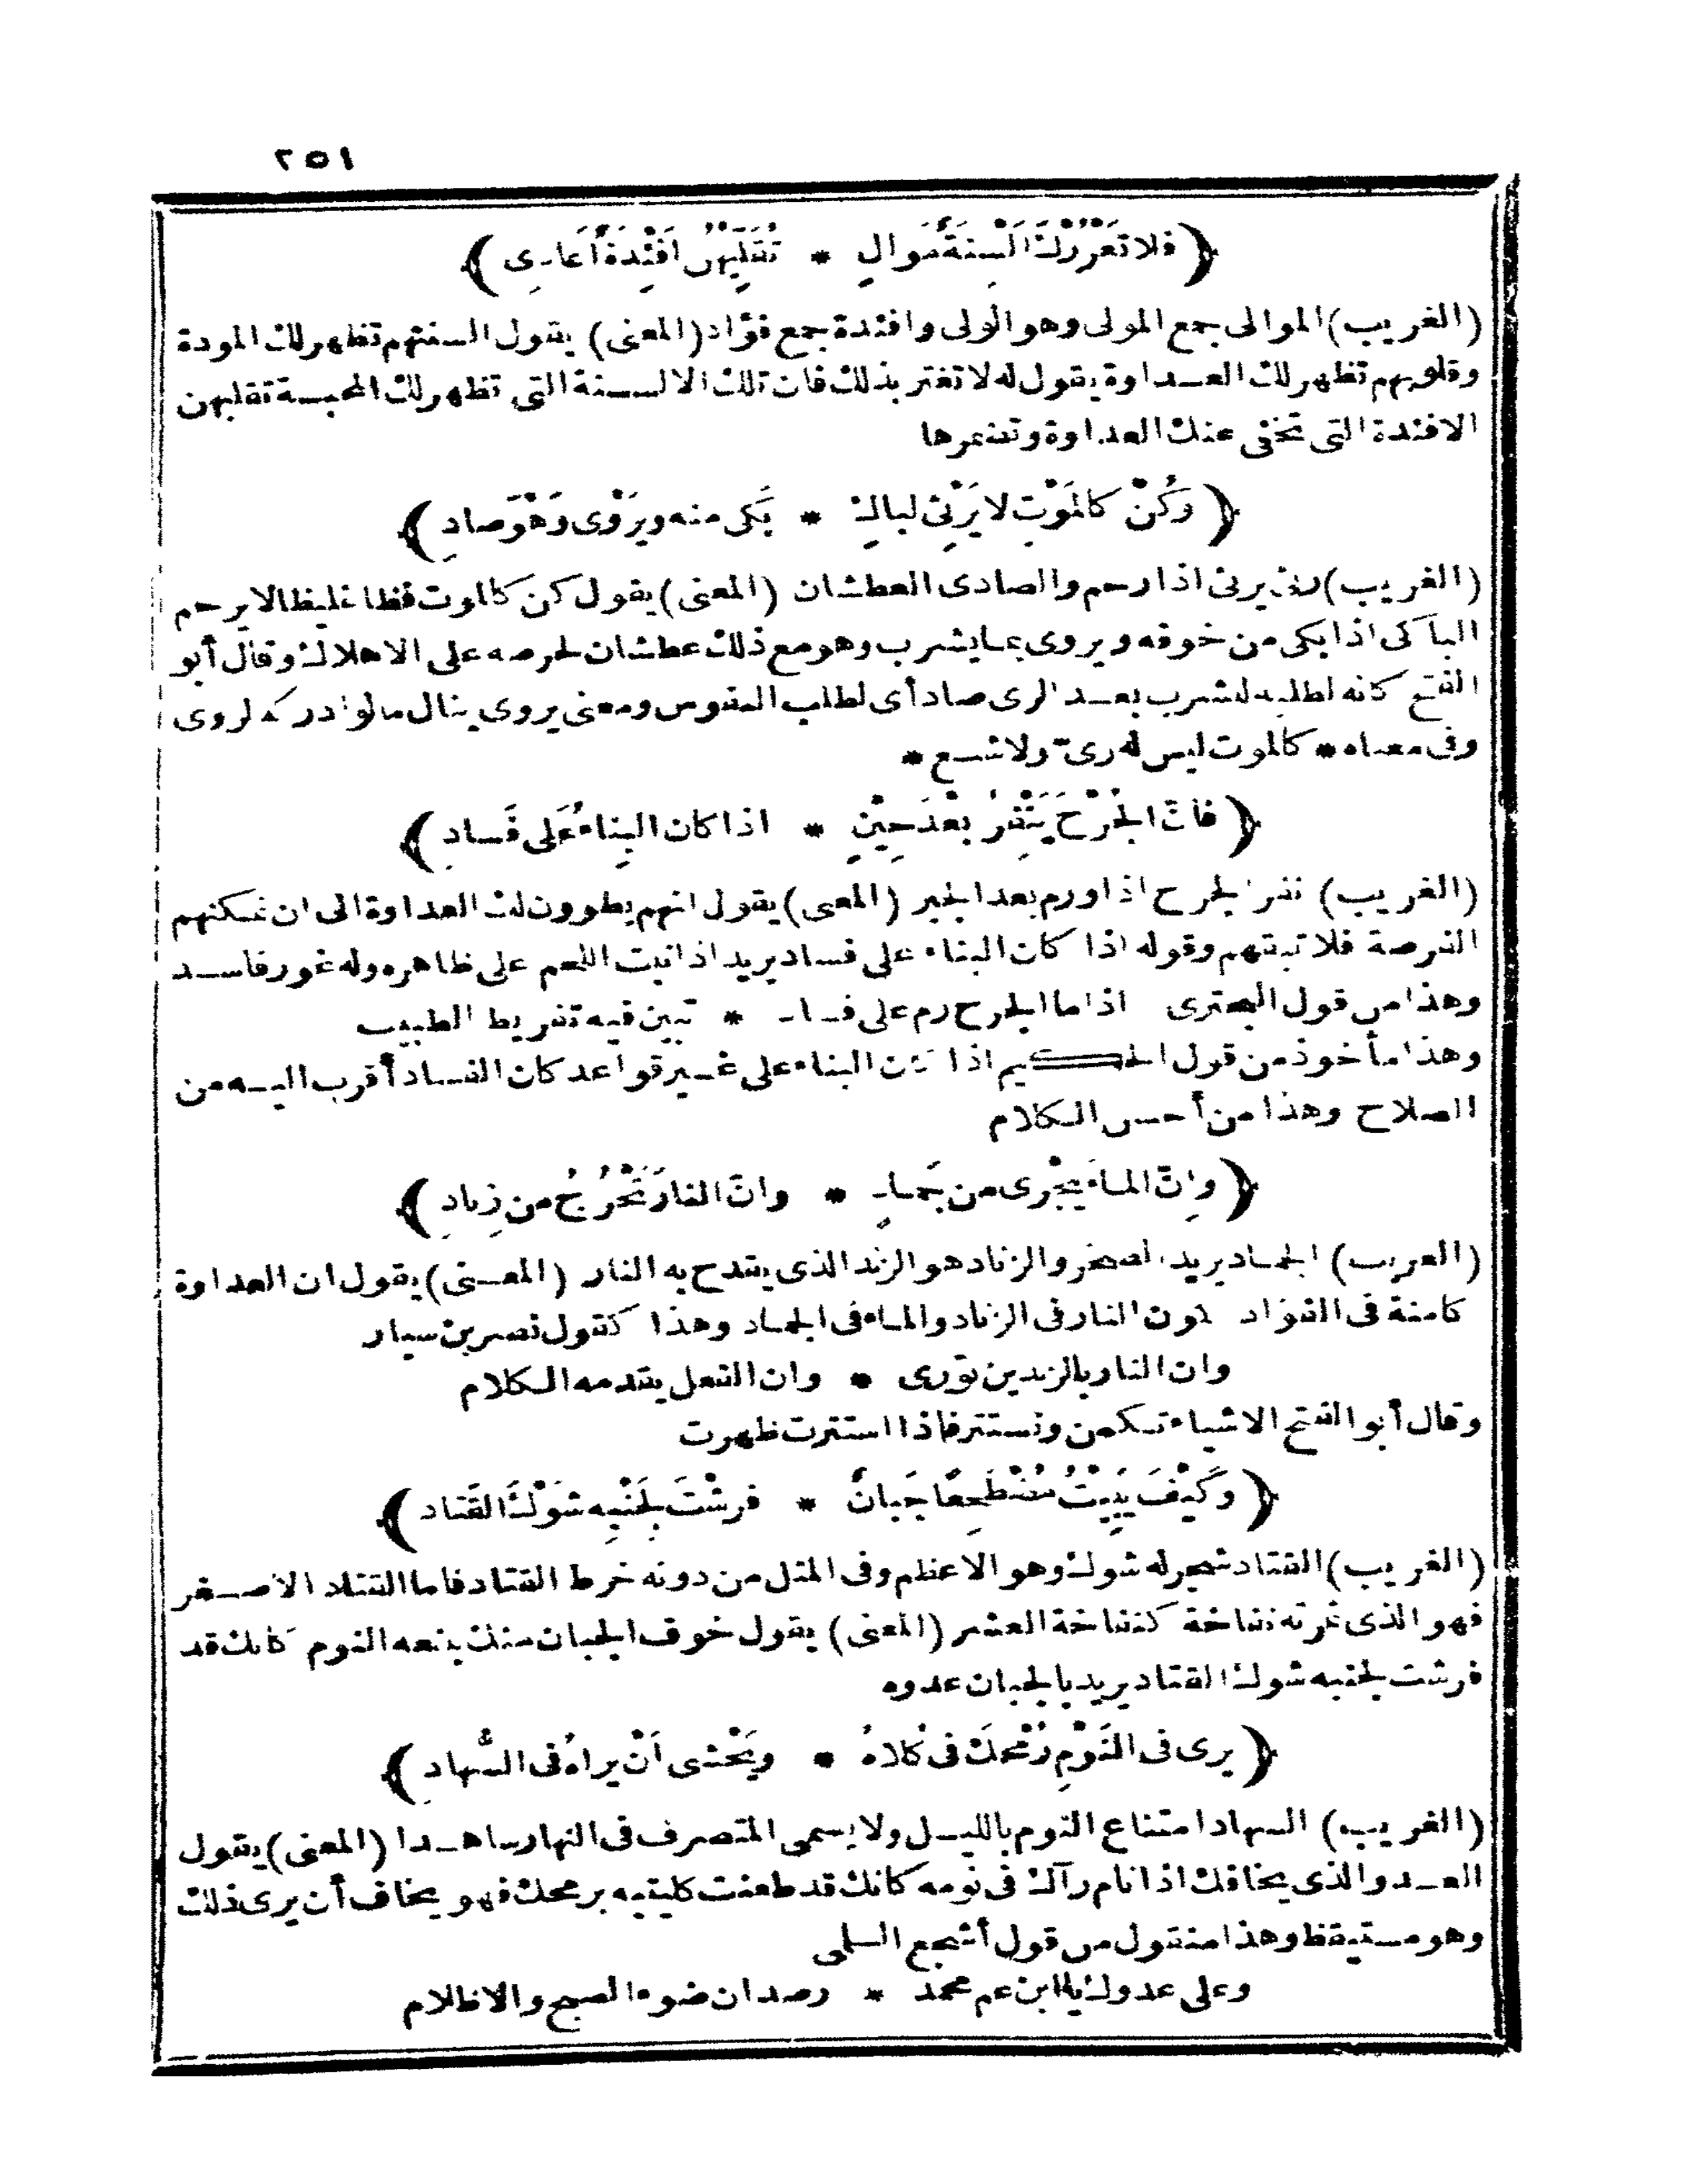 ٢٥١
﴿ فلا تَغْرُرْكَ اَلْسِنَةٌ مَوالٍ * تُقَلِّبُهُنّ اَفْئِدَةٌ اَعادِى ﴾
(الغريب) الموالى جمع المولى وهو الولى وافئدة جمع فؤاد (المعنى) يقول السنتهم تظهر لك المودة
وقلوبهم تظهر لك العداوة يقول له لا تغتر بذلك فان تلك الالسنة التى تظهر لك المحبة تقلبهن
الافئدة التى تخفى عنك العداوة وتضمرها
﴿ وَكُنْ كالمَوْتِ لا يَرْثِى لباكٍ * بَكى منه ويَرْوَى وَهْوَ صادِ ﴾
(الغريب) رثى يرثى اذا رحم والصادى العطشان (المعنى) يقول كن كالموت فظا غليظا لا يرحم
الباكى اذا بكى من خوفه ويروى بما يشرب وهو مع ذلك عطشان لحرصه على الاهلاك وقال أبو
الفتح كانه لطلبه لشرب بعد الرى صاد أى لطلب النفوس ومعنى يروى ينال ما لو ادركه لروى
وفى معناه * كالموت ليس له رىّ ولا شبع *
﴿ فانّ الجُرْحَ يَنْفِرُ بَعْدَ حِينٍ * اذا كان البِناءُ عَلى فَسادِ ﴾
(الغريب) نفر الجرح اذا ورم بعد الجبر (المعنى) يقول انهم يطوون لك العداوة الى ان تمكنهم
الفرصة فلا تبقهم وقوله اذا كان البناء على فساد يريد اذا نبت اللحم على ظاهره وله غور فاسد
وهذا من قول البحترى اذا ما الجرح رم على فساد * تبين فيه تفريط الطبيب
وهذا مأخوذ من قول الحكيم اذا كان البناء على غير قواعد كان الفساد أقرب اليه من
الصلاح وهذا من أحسن الكلام
﴿ وانّ الماءَ يَجْرى من جَمادٍ * وانّ النارَ تَخْرُجُ من زِنادِ ﴾
(الغريب) الجماد يريد الصخر والزناد هو الزند الذى يقتدح به النار (المعنى) يقول ان العداوة
كامنة فى الفؤاد كون النار فى الزناد والماء فى الجماد وهذا كقول نصر بن سيار
وان النار بالزندين تورى * وان الفعل يقدمه الكلام
وقال أبو الفتح الاشياء تكمن وتستتر فاذا استترت ظهرت
﴿ وَكَيْفَ يَبِيتُ مُضْطَجِعًا جَبانٌ * فرشْتَ لِجَنْبِه شَوْكَ القَتاد ﴾
(الغريب) القتاد شجر له شوك وهو الاعظم وفى المثل من دونه خرط القتاد فاما القتاد الاصغر
فهو الذى ثمرته نفاخة كنفاخة العشر (المعنى) يقول خوف الجبان منك يمنعه النوم كانك قد
فرشت لجنبه شوك القتاد يريد بالجبان عدوه
﴿ يرى فى النَوْمِ رُمْحَكَ فى كُلاهُ * ويَخْشى اَنْ يراهُ فى السُّهاد ﴾
(الغريب) السهاد امتناع النوم بالليل ولا يسمى المتصرف فى النهار ساهدا (المعنى) يقول
العدو الذى يخافك اذا نام رآك فى نومه كانك قد طعنت كليتيه برمحك فهو يخاف أن يرى ذلك
وهو مستيقظ وهذا منقول من قول أشجع السلمى
وعلى عدوك يا ابن عم محمد * رصدان ضوء الصبح والاظلام